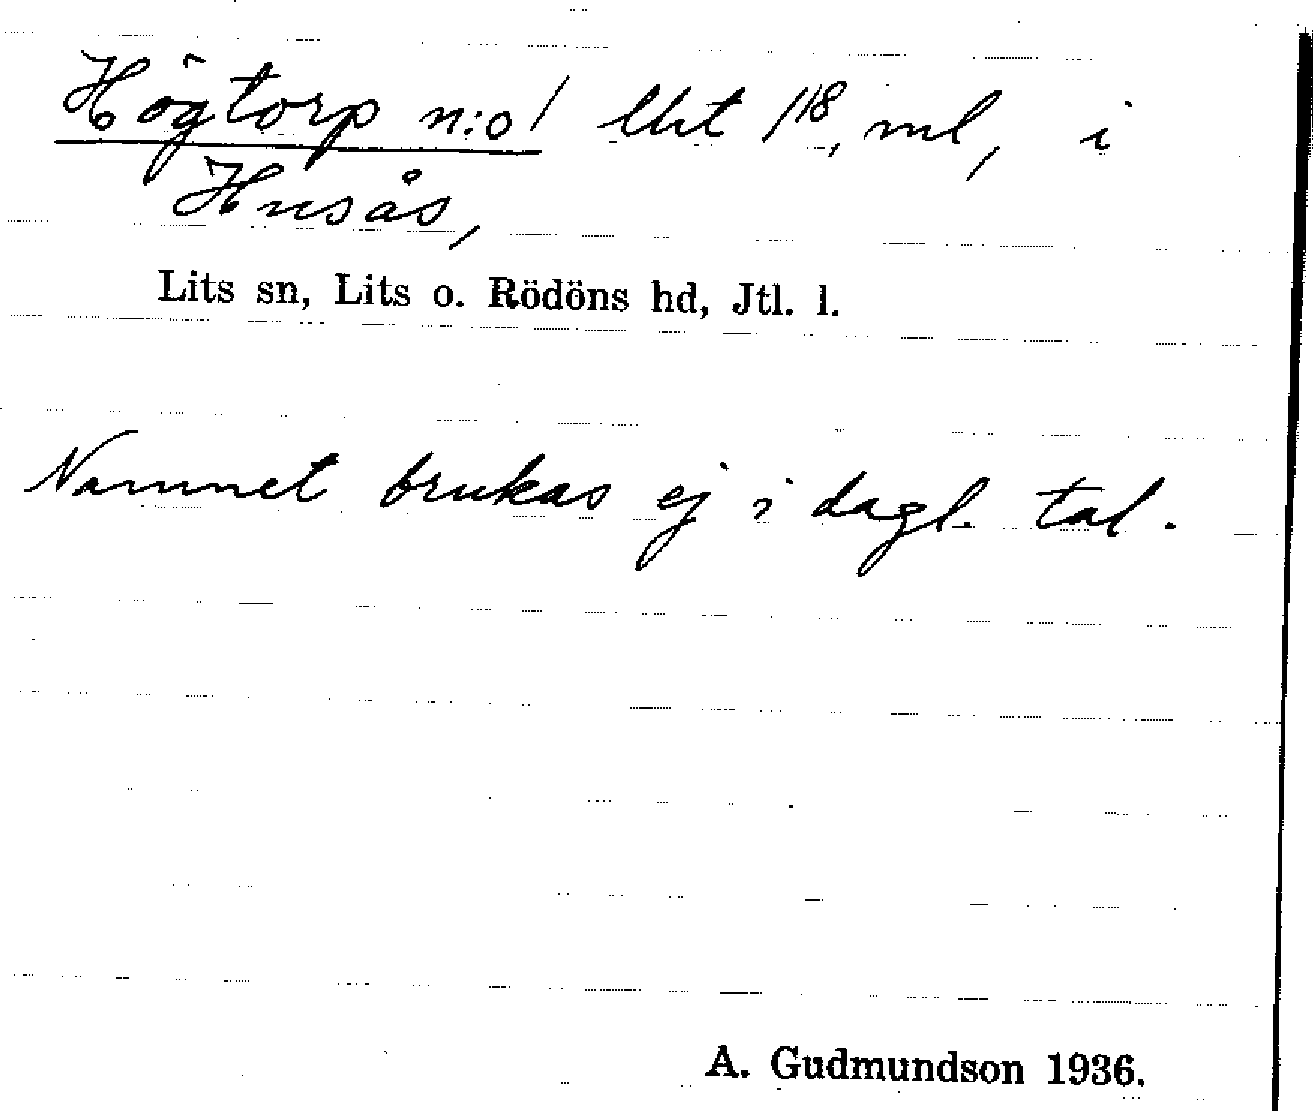 Högtorp n:o 1 lht 1/18, ml, i
Husås,
Lits sn, Lits o. Rödöns hd, Jtl. l.
Namnet brukas ej i dagl. tal.
A. Gudmundson 1936.